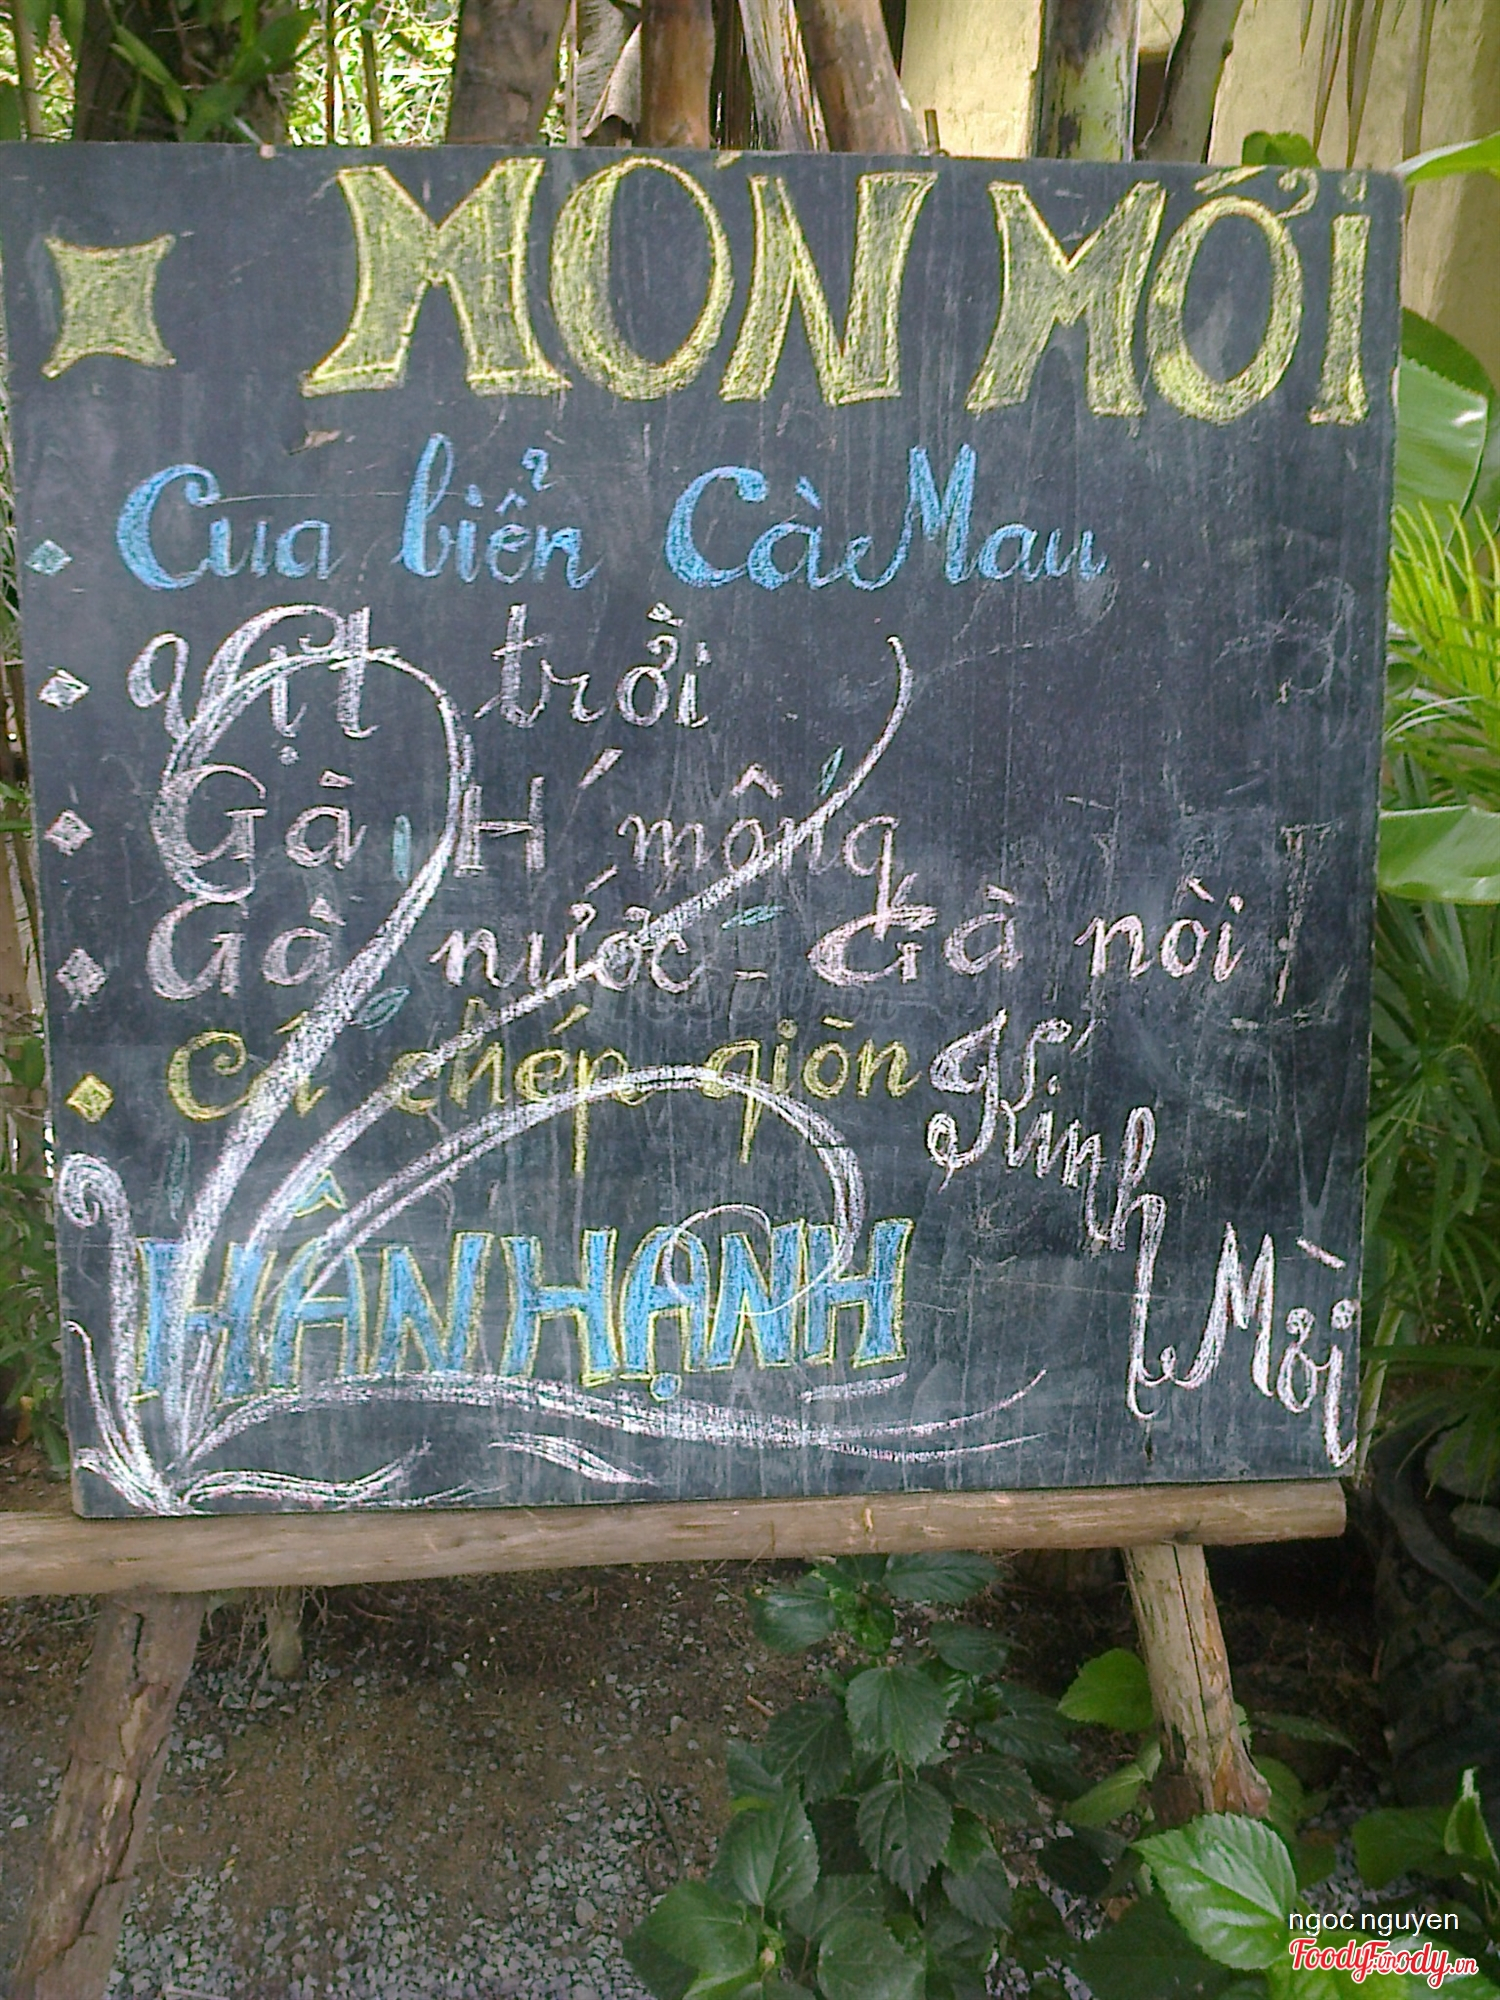 MÓN MỚI
Cua biển Cà Mau
Vịt trời
Gà H'mông
Gà nước - Gà nòi
Cá chép giòn
HÂN HẠNH
Kính
Mời
ngoc nguyen
Foody.vn